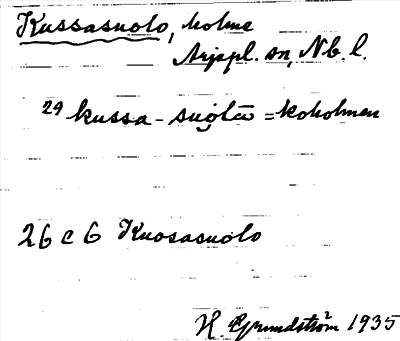 Kussasuolo, holme
Arjepl. sn, Nb. l.
29 kussa-suo̬lū = koholmen
26 C 6 Kuosasuolo
H. Grundström 1935